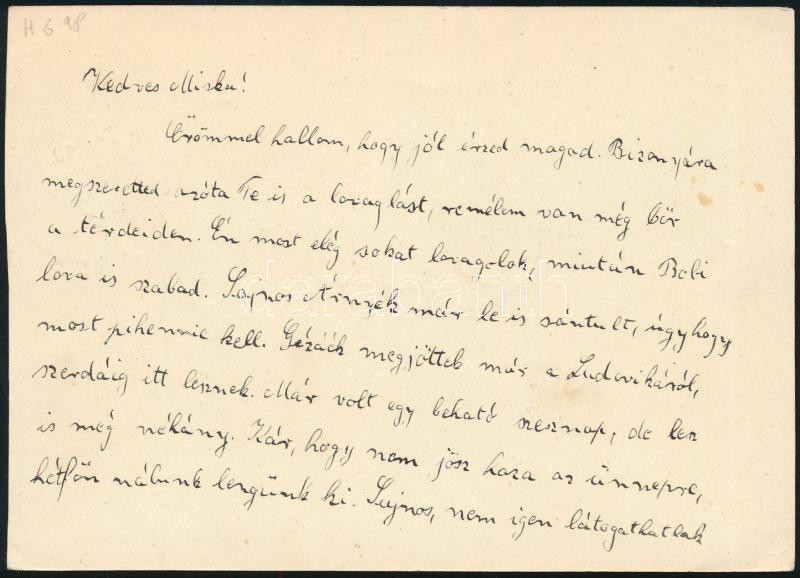 H 6 98
Kedves Miska!
Örömmel hallom, hogy jól érzed magad. Bizonyára
megszeretted azóta Te is a lovaglást, remélem van még bőr
a térdeiden. Én most elég sokat lovagolok, miután Bobi
lova is szabad. Sajnos Árnyék már le is sántult, úgyhogy
most pihennie kell. Gézáék megjöttek már a Ludovikáról,
szerdáig itt lesznek. Már volt egy beható szesznap, de lesz
is még néhány. Kár, hogy nem jösz haza az ünnepre,
hétfőn nálunk lengünk ki. Sajnos, nem igen látogathatlak
darabanth